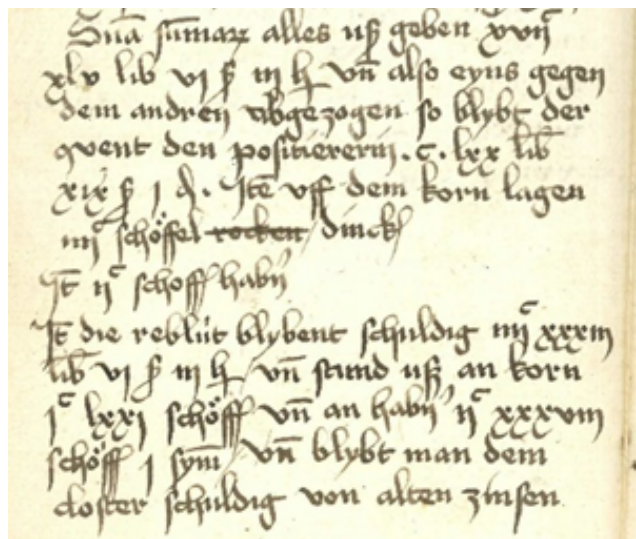 Suma sumarum alles uß geben xvii c
xlv lib vi ß iii h vn also eyns gegen
dem andren abgezogen so blybt der
qvent den positiererin . c . lxx lib
xix ß i d . Ite vff dem korn lagen
iiii c schöffel rocken dinck
It ii c schöff habn
It die reblut blybent schuldig iiii c xxxiii
lib vi ß iii h vn stund uß an korn
i c lxxi schöff vn an habn ii c xxxviii
schöff i sym vn blybt man dem
closter schuldig von alten zinsen